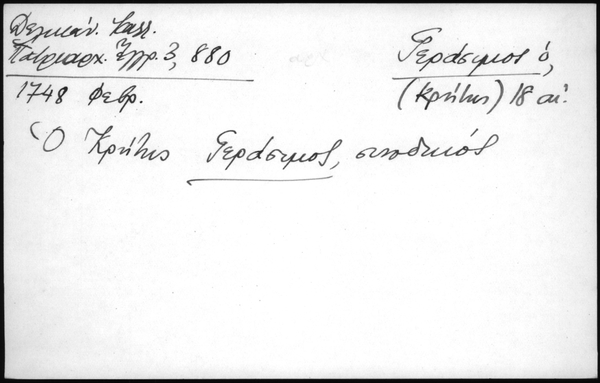 Δελικάν. Καλλ.
Πατριαρχ. Ἔγγρ. 3, 880
1748 Φεβρ.
Γεράσιμος ὁ,
(Κρήτης) 18 αἰ.
Ὁ Κρήτης Γεράσιμος, συνοδικός